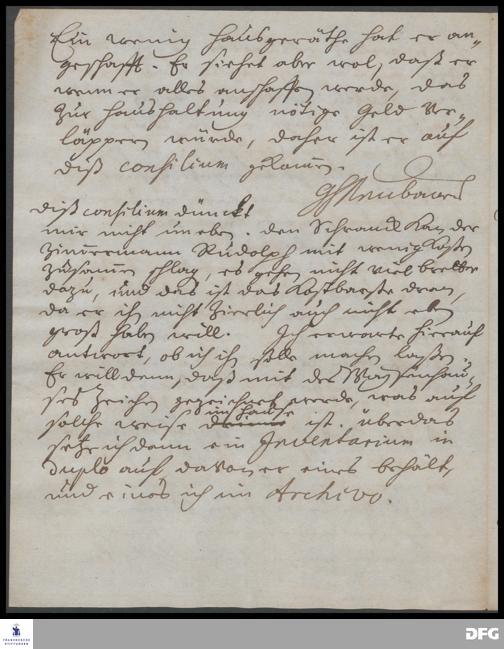 Ein wenig hausgeräthe hat er an-
geschafft. Er siehet aber wol, daß er
wenn er alles anschaffen werde, das
zur haushaltung nötige Geld ver-
läppern würde, daher ist er auf
diß consilium gekom̄en.
GHNeubauer
diß consilium dünckt
mir nicht uneben. den Schranck kan der
Zim̄ermann Rudolph mit wenig Kosten
zusam̄en schlag, es gehen nicht viel bretter
dazu, und das ist das Kostbarste dran,
da er ihn nicht zierlich auch nicht eben
groß haben will. Ich erwarte hierauf
antwort, ob ich ihn solle machen laßen.
Er will denn, daß mit des Waysenhau-
ses Zeichen gezeichnet werde, was auf
solche weise im hause ist. überdas
setze ich dann ein Inventarium in
duplo auf, davon er eines behält,
und eines ich im Archivo.
FRANCKESCHE
STIFTUNGEN
DFG